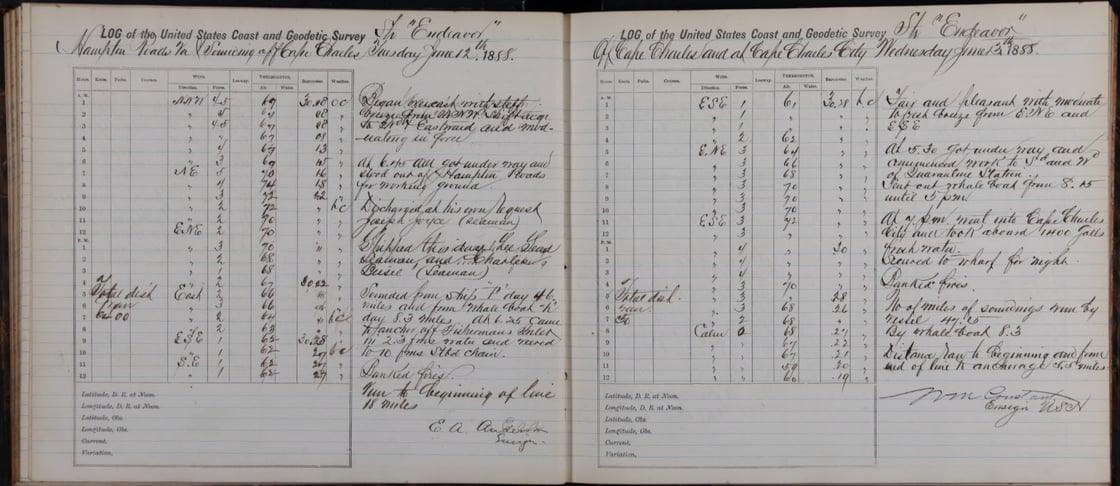 LOG of the United States Coast and Geodetic Survey Str "Endeavor"
Hampton Roads Va & Running off Cape Charles Tuesday June 12th, 1888.
Hour. Knots. Fths. Courses. Wind. Leeway. Thermometer. Barometer. Weather.
Direction. Force. Air. Water.
A. M.
1 NNW 4.5 69 30.08 oc
2 " 4
3 " 4.5
4 " "
5 " 4 67 13
6 " 3 69 15
7 NE 5 70 16
8 " 4 74 18
9 " 3 72 22
10 " 2 72 " bc
11 " 2 70 "
12 ENE 2 70 "
P. M.
1 " 3 70 "
2 " 2 68 "
3 " 1 68 "
4 " 2 67 30.22
5 East 2 66 "
6 " 3 66 "
7 " 2 64 " bc
8 " 2 63 "
9 ESE 1 62 30.28
10 " 1 62 27 bc
11 SE 1 62 27
12 " 1 62 27
Total dist
run
Began overcast with stiff
breeze from NNW shifting
to N & Eastward and mod-
erating in force
At 6.45 AM got under way and
stood out of Hampton Roads
for working ground
Discharged at his own request
Joseph Joyce (Seaman)
Shipped this day
Seaman, and Charles
(Seaman)
Sounded from ship "P" day 46
miles and from whale boat "K"
day 8.3 miles. At 6.25 came
to anchor off Fisherman's Inlet
in 2.3 fms water and veered
to 10 fms Stbd chain.
Banked fires
Run to beginning of line
18 miles
E A Anderson
Ensign
Latitude, D. R. at Noon.
Longitude, D. R. at Noon.
Latitude, Obs.
Longitude, Obs.
Current,
Variation,
LOG of the United States Coast and Geodetic Survey Str "Endeavor"
Off Cape Charles and at Cape Charles City Wednesday June 13th, 1888.
Hour. Knots. Fths. Courses. Wind. Leeway. Thermometer. Barometer. Weather.
Direction. Force. Air. Water.
A. M.
1 ESE 1 61 30.28 bc
2 " 1
3 " 1
4 " 2 62
5 ENE 3 64
6 " 3 66
7 " 3 68
8 " 3 70
9 " 3 70
10 " 3 70
11 ESE 3 72
12 " 3 "
P. M.
1 " 4 " 30
2 " 4 "
3 " 4 "
4 " 3 70
5 " 3 " 28
6 " 3 68 26
7 " 2 68 "
8 Calm 0 68 27
9 " " 67 22
10 " " 67 21
11 " " 59 20
12 " " 60 .19
Total dist.
run
Fair and pleasant with moderate
to fresh breeze from ENE and
ESE
At 5.30 got under way and
commenced work to Sd and Wd
of Quarantine Station.
Sent out whale boat from 8.15
until 5 pm
At 7 pm went into Cape Charles
City and took aboard 1400 galls
fresh water.
Secured to wharf for night.
Banked fires.
No of miles of soundings run by
By whale boat 8.3
Distance run to beginning and from
end of line to anchorage 5.5 miles
Wm Constant
Ensign USN
Latitude, D. R. at Noon.
Longitude, D. R. at Noon.
Latitude, Obs.
Longitude, Obs.
Current,
Variation,